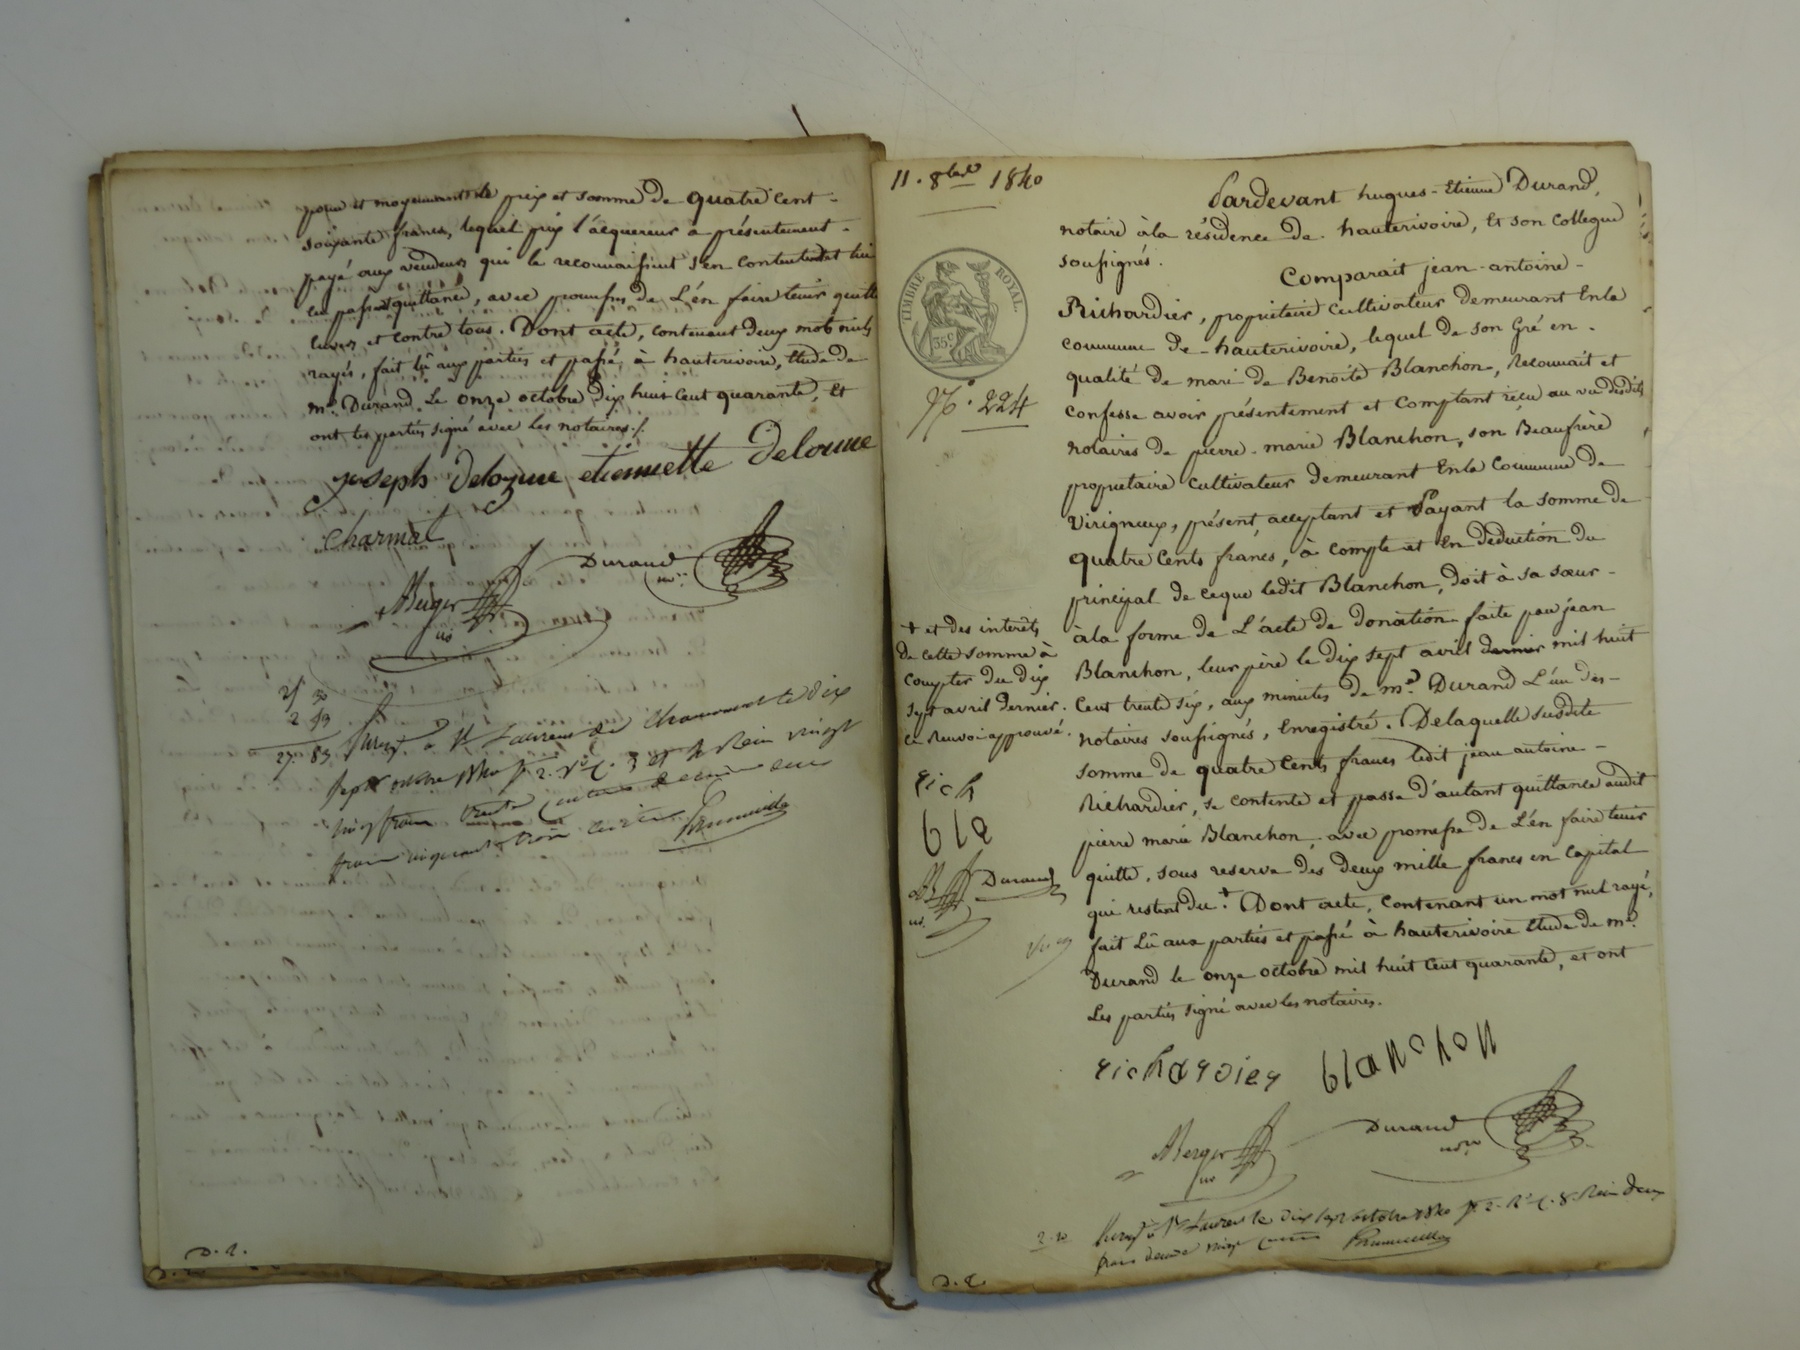 pour et moyennant le prix et somme de quatre cent
soixante francs, lequel prix l'acquereur a présentement
payé aux vendeurs qui le reconnaissent s'en contentent et lui
en passent quittance, avec promesse de L'en faire tenir quitte
envers et contre tous. Dont acte, contenant deux mots nuls
rayés, fait lû aux parties et passé à hauterivoire, Etude de
me. Durand Le onze octobre dix huit cent quarante, Et
ont les parties signé avec les notaires./.
joseph delorme etiennette delorme
charmat
Durand
nre
Berger
no
25 30
2 53
27 83
à St Laurent de Chamousset le dix
sept octobre 1840 f° 2. Vo C. 3 et Rein vingt
cinq francs trente centimes
francs cinquante trois
D. E.
11. 8bre 1840
Pardevant hugues-Etienne Durand,
notaire à la résidence de hauterivoire, Et son Collegue
soussignés.
TIMBRE ROYAL
35c
Comparait jean-antoine
Richardier, propriétaire Cultivateur demeurant Enla
commune de hauterivoire, lequel de son Gré en
qualité de mari de Benoite Blanchon, Reconnait et
N°. 224
confesse avoir présentement et Comptant reçu au vu desdits
notaires de pierre-marie Blanchon, son Beaufrère
propriétaire Cultivateur demeurant Enla Commune de
Virigneux, présent, acceptant et Payant la somme de
quatre Cents francs, à compte et En déduction du
principal de ceque ledit Blanchon, doit à sa sœur
àla forme de L'acte de donation faite par jean
Blanchon, leur père le dix sept avril dernier mil huit
Cent trente six, aux minutes de me. Durand L'un des
notaires soussignés, Enregistré. Delaquelle susdite
somme de quatre Cents francs ledit jean antoine
Richardier, se contente et passe d'autant quittance audit
pierre marie Blanchon, avec promesse de L'en faire tenir
quitte, sous reserve des deux mille francs en Capital
qui restent du +. Dont acte, Contenant un mot nul rayé,
fait Lû aux parties et passé à hauterivoire Etude de me.
Durand le onze octobre mil huit Cent quarante, et ont
Les parties signé avec les notaires.
+ et des interêts
de cette somme à
compter du dix
sept avril dernier.
Ce Renvoi approuvé.
rich
bla
Durand
richardier blanchon
Berger
no
Durand
nre
2 20
à St Laurent le dix sept octobre 1840 f° 2. Ro C. 8 Rein deux
francs vingt centimes
D. E.